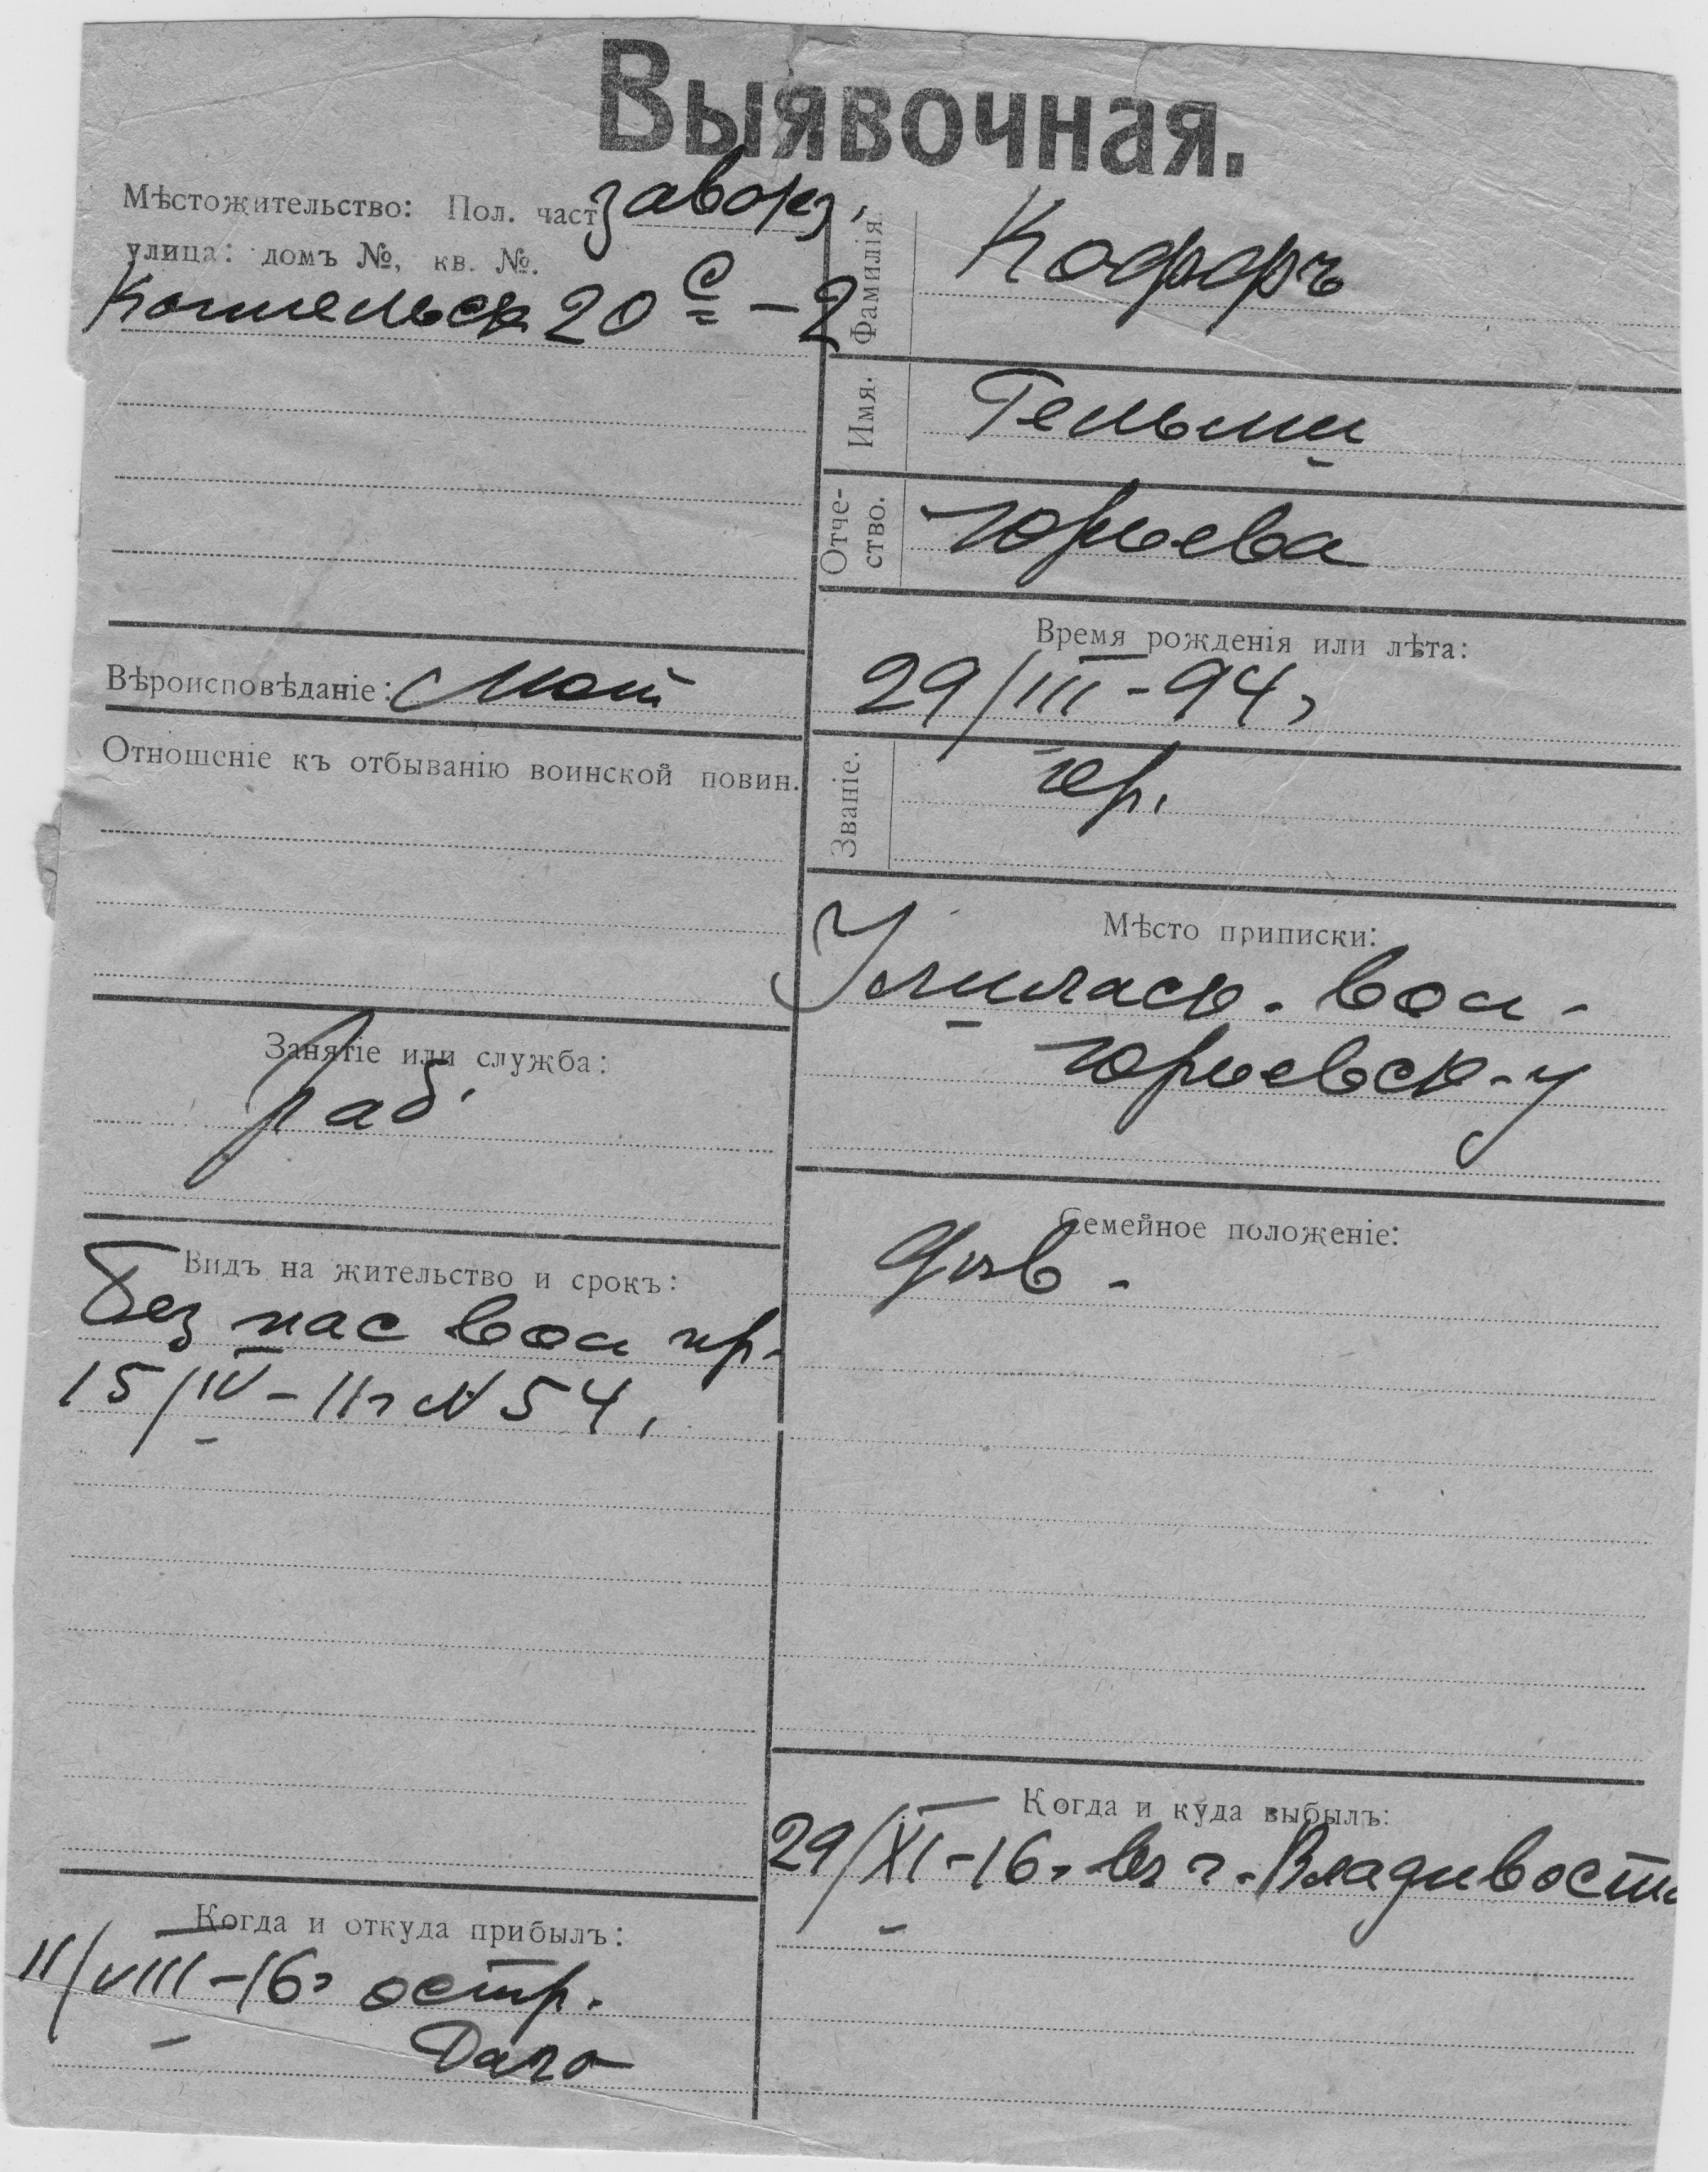 Выявочная.
Мѣстожительство: Пол. част. завокз.
улица: домъ №, кв. №.
Копельск 20 с – 2
Вѣроисповѣданіе: Лют
Отношеніе къ отбыванію воинской повин.
Занятіе или служба:
Раб.
Видъ на жительство и срокъ:
Без пас вол пр.
15/IV – 11г № 54,
Когда и откуда прибылъ:
11/VIII – 16г остр.
Даго
Фамилія.
Коффъ
Имя.
Гельми
Отчество.
Юрьева
Время рожденія или лѣта:
29/III – 94г
Званіе.
кр.
Мѣсто приписки:
вол –
Юрьевск – у
Семейное положеніе:
дѣв –
Когда и куда выбылъ:
29/XI – 16г въ г. Владивост